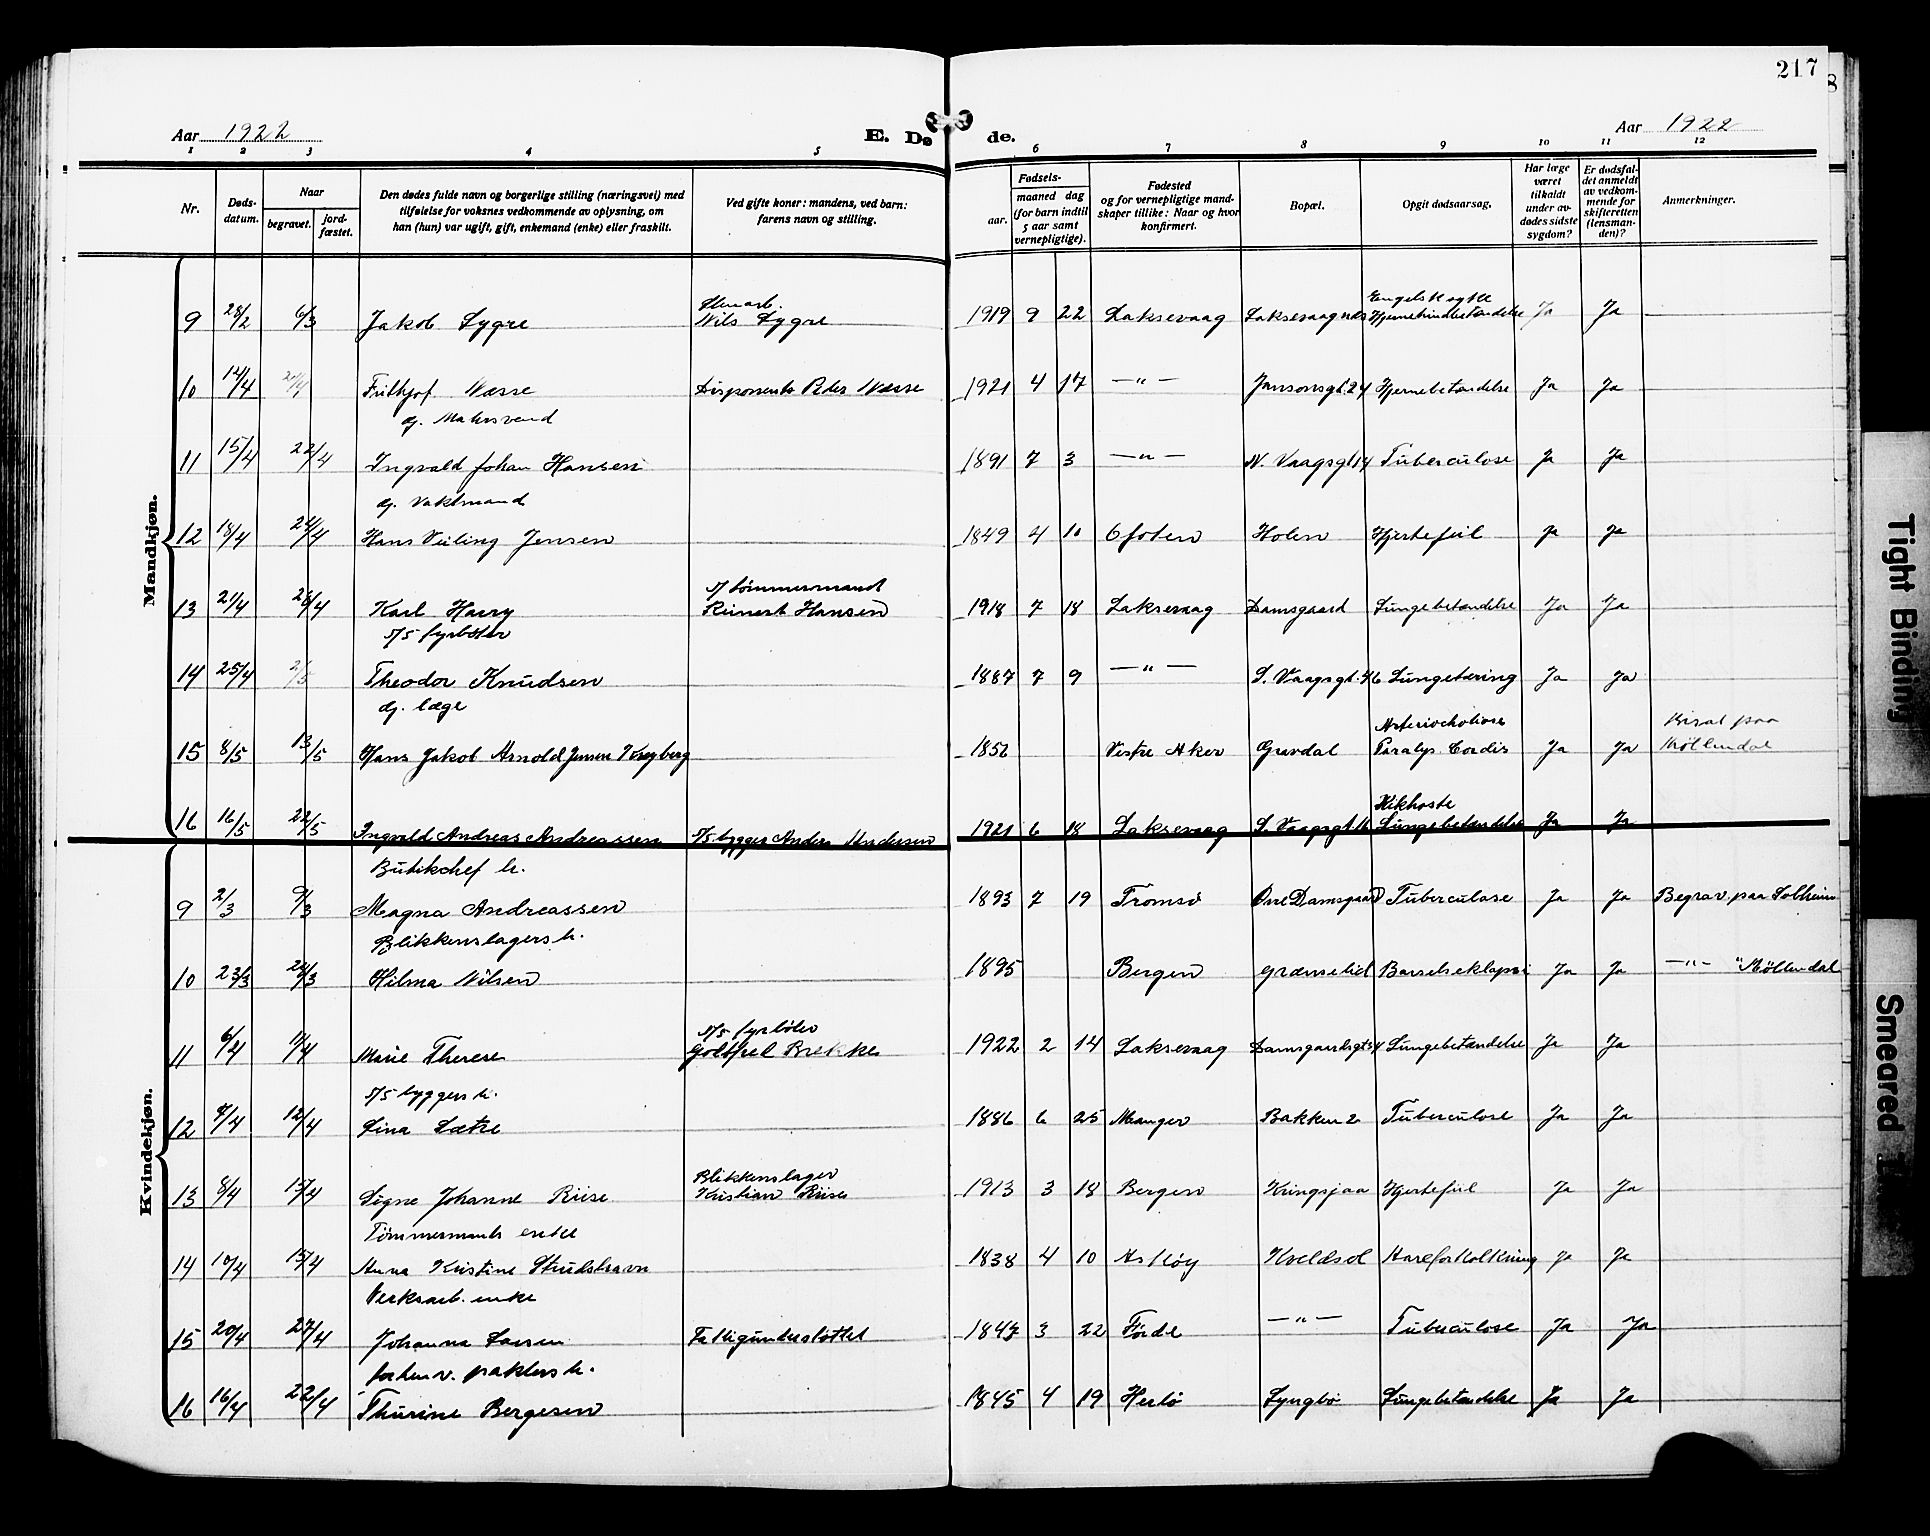 217
8
Aar 1922
E. Dø
de.
Aar 1922
1 2 3 4 5 6 7 8 9 10 11 12
Nr.
Døds-
datum.
Naar
begravet.
jord-
fæstet.
Den dødes fulde navn og borgerlige stilling (næringsvei) med
tilføielse for voksnes vedkommende av oplysning, om
han (hun) var ugift, gift, enkemand (enke) eller fraskilt.
Ved gifte koner: mandens, ved barn:
farens navn og stilling.
Fødsels-
aar.
maaned dag
(for barn indtil
5 aar samt
vernepligtige).
Fødested
og for vernepligtige mand-
skaper tillike: Naar og hvor
konfirmert.
Bopæl.
Opgit dødsaarsag.
Har læge
været
tilkaldt
under av-
dødes sidste
sygdom?
Er dødsfal-
det anmeldt
av vedkom-
mende for
skifteretten
(lensman-
den)?
Anmerkninger.
Mandkjøn.
Stenarb. Engelsk syke
9 28/2 6/3 Jakob Lygre Nils Lygre 1919 9 22 Laksevaag Laksevaagnes Hjernehindbetændelse Ja Ja
10 14/4 Frithjof Næsse Disponent Peder Næsse 1921 4 17 —„— Jansonsgt. 24 Hjernebetændelse Ja Ja
g. Matrosvend
11 15/4 22/4 Ingvald Johan Hansen 1891 7 3 —„— N. Vaagsgt 14 Tuberculose Ja Ja
g. Vaktmand
12 18/4 24/4 Hans Veiling Jensen 1849 4 10 Ofoten Holen Hjertefeil Ja Ja
s/ tømmermand
13 21/4 28/4 Karl Harry Reinert Hansen 1918 7 18 Laksevaag Damsgaard Lungebetændelse Ja Ja
s/s fyrbøter
14 25/4 2/5 Theodor Knudsen 1887 7 9 —„— S. Vaagsgt. 46 Lungetæring Ja Ja
g. læge
15 8/5 13/5 Hans Jakob Arnold Jensen 1852 Vestre Aker Gravdal Paralys Cordis Ja Ja Møllendal
Kikhoste
16 16/5 22/5 Ingvald Andreas Andreassen s/s bygger Anders Andersen 1921 6 18 Laksevaag S. Vaagsgt. 16 Lungebetændelse Ja Ja
Kvindekjøn.
Butikchef h.
9 2/3 9/3 Magna Andreassen 1893 7 19 Tromsø Øvre Damsgaard Tuberculose Ja Ja Begrav. paa Solheim
Blikkenslagers h.
10 23/3 28/3 Hilma Nilsen 1895 Bergen Grænselid Barselseklapsi Ja Ja —„— „ Møllendal
s/s fyrbøter
11 6/4 11/4 Marie Therese Gotfred Brekke 1922 2 14 Laksevaag Damsgaardsgt 54 Lungebetændelse Ja Ja
s/s byggers h.
12 8/4 12/4 Lina Sætre 1886 6 25 Manger Bakken 2 Tuberculose Ja Ja
Blikkenslager
13 8/4 15/4 Signe Johanne Riise Kristian Riise 1913 3 18 Bergen Kringsjaa Hjertefeil Ja Ja
Tømmermands enke
14 10/4 15/4 Anna Kristine Strudshavn 1838 4 10 Askøy Kveldsol Aareforkolkning Ja Ja
Verksarb. enke
15 20/4 27/4 Johanna Larsen Fattigunderstøttet 1847 3 22 Førde —„— Tuberculose Ja Ja
forhenv. pakters h.
16 16/4 22/4 Thurine Bergesen 1845 4 19 Herlø Lyngbø Lungebetændelse Ja Ja
Tight Binding
Smeared